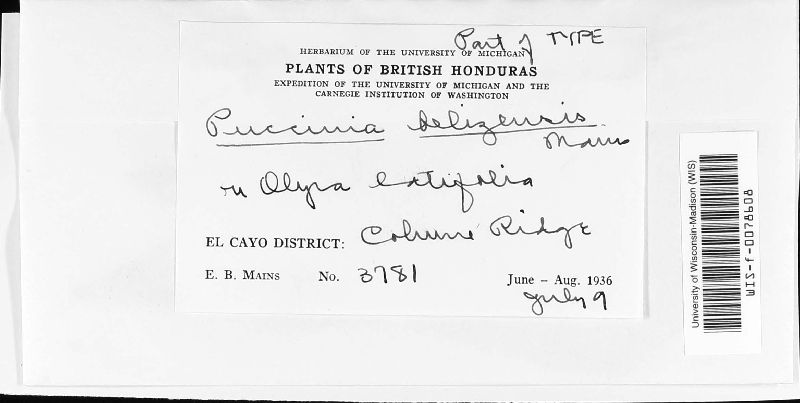 Part of TYPE
HERBARIUM OF THE UNIVERSITY OF MICHIGAN
PLANTS OF BRITISH HONDURAS
EXPEDITION OF THE UNIVERSITY OF MICHIGAN AND THE
CARNEGIE INSTITUTION OF WASHINGTON
Puccinia belizensis
Mains
Olyra latifolia
EL CAYO DISTRICT: Cohune Ridge
E. B. MAINS No. 3781 June – Aug. 1936
July 9
University of Wisconsin-Madison (WIS)
WIS-f-0078608